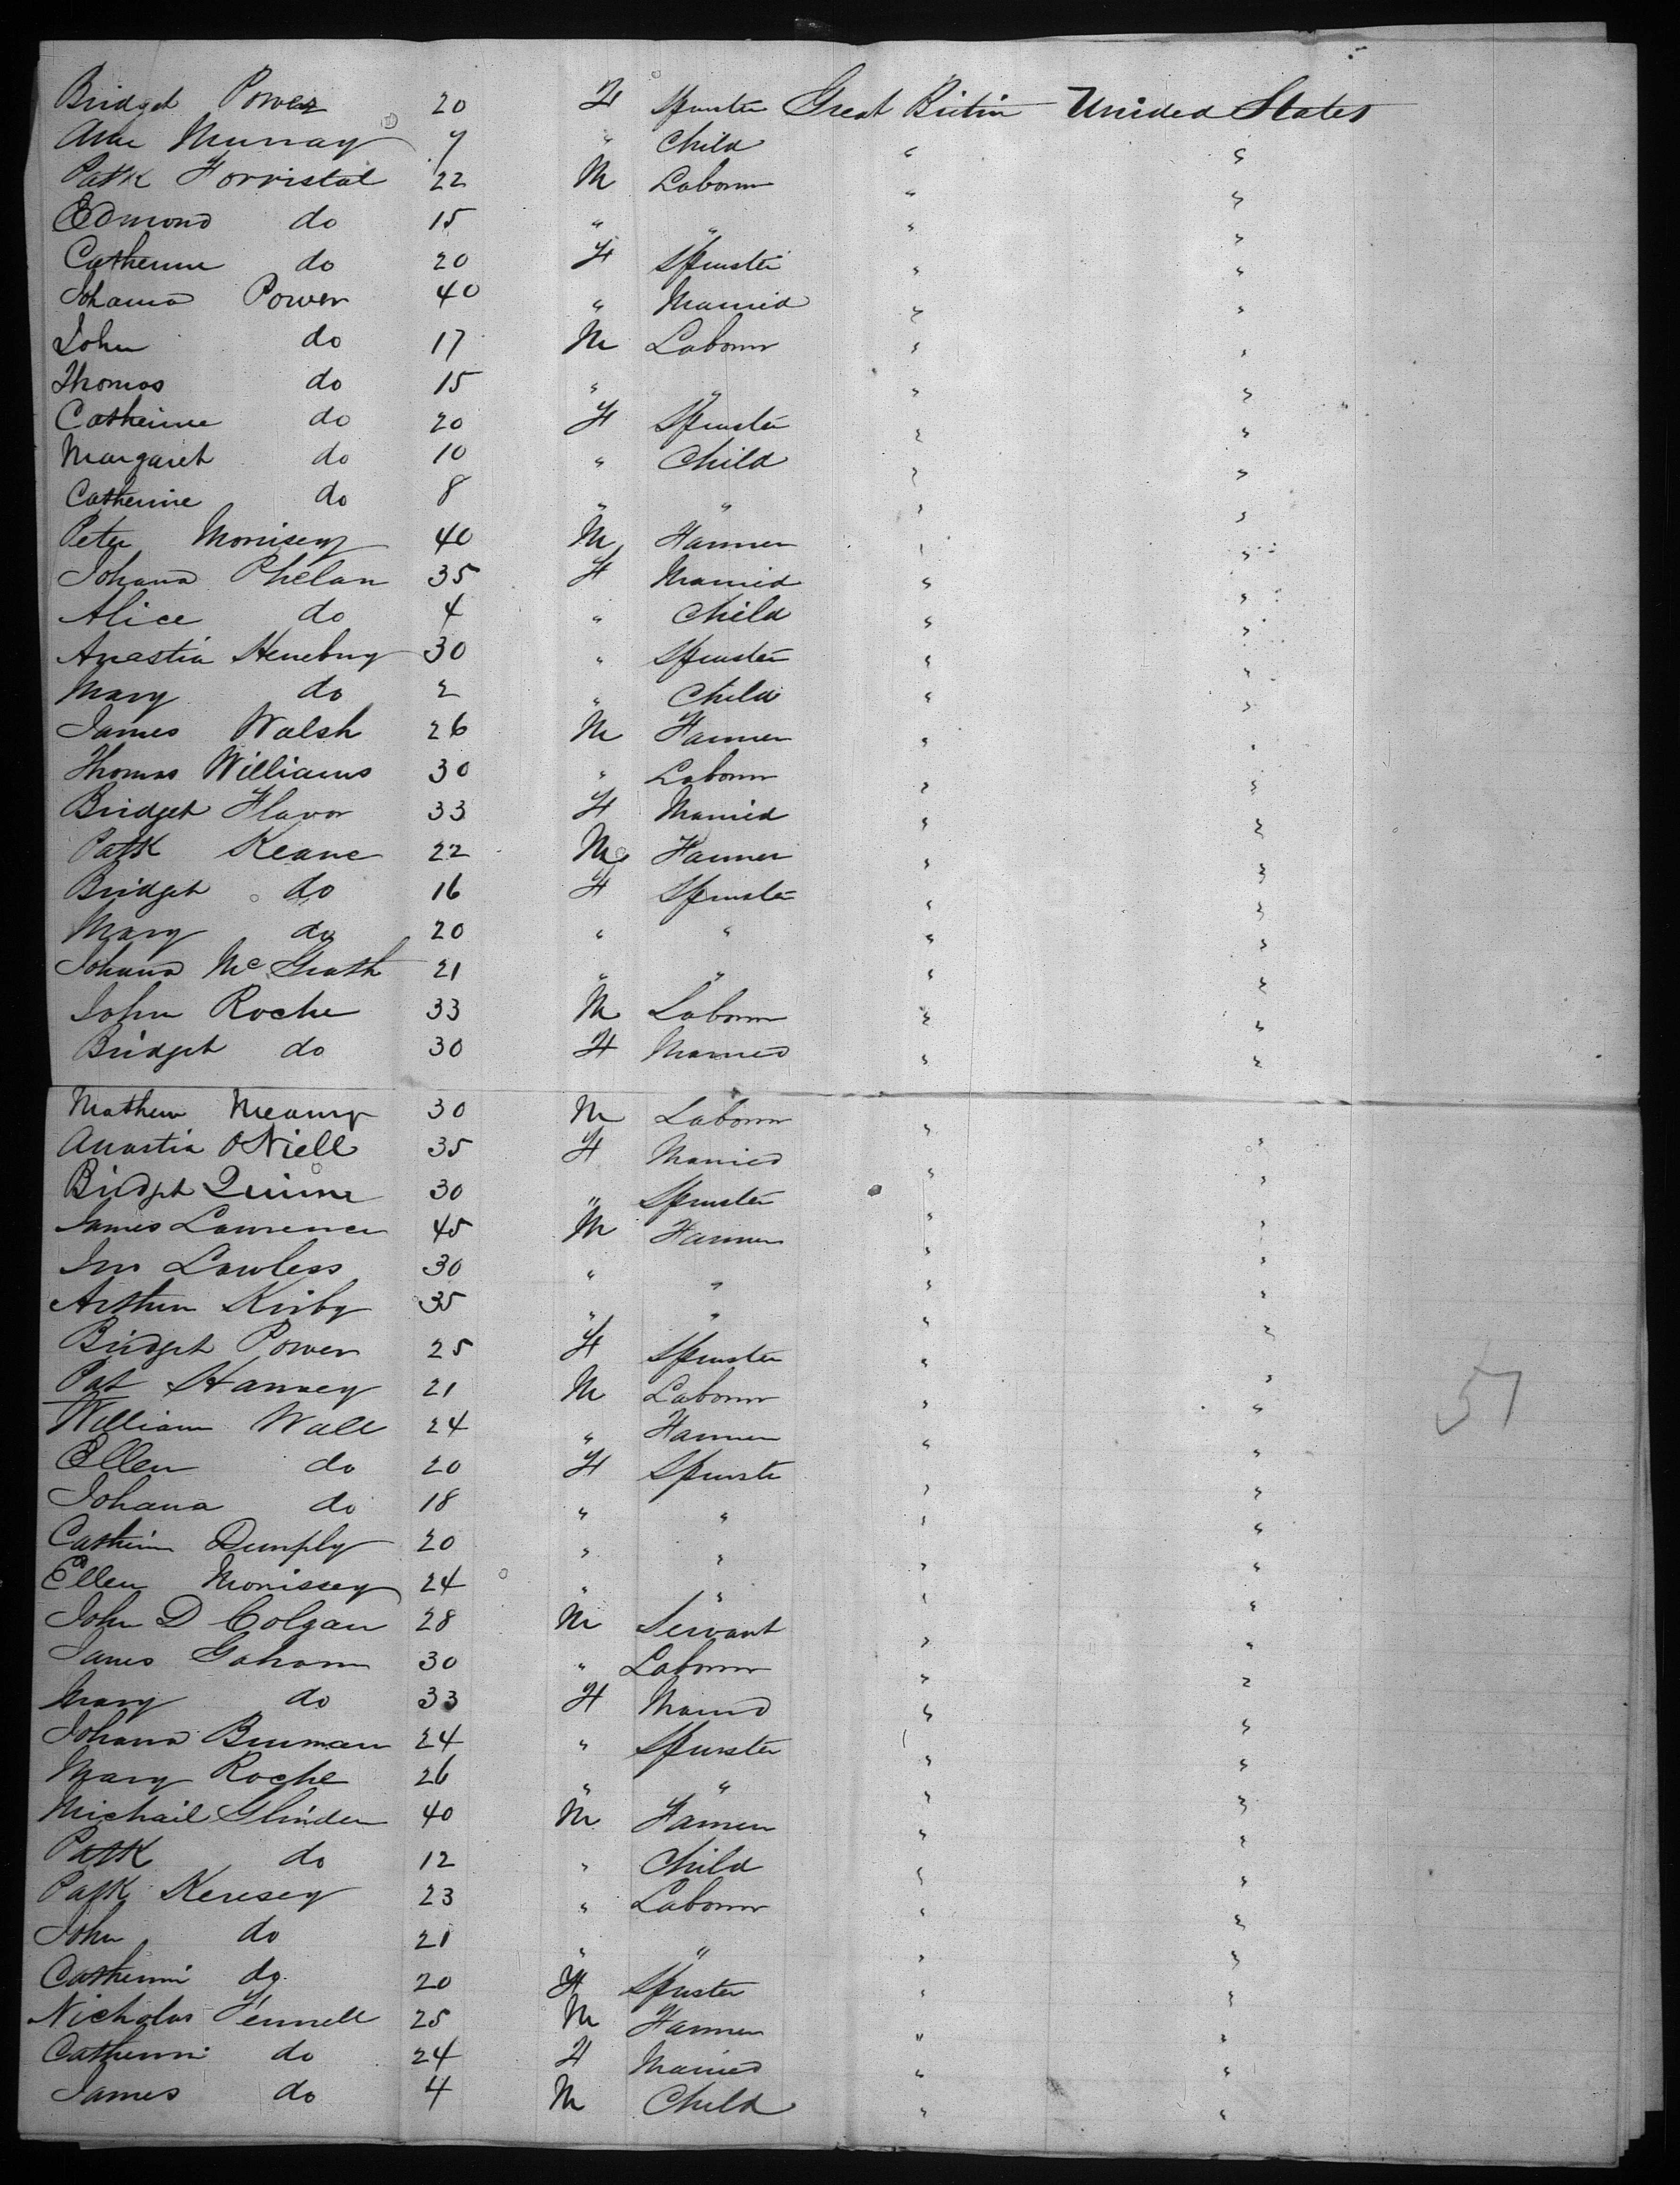 Bridget Power 20 F Spinster Great Britin United States
Ann Murray 7 " Child " "
Patk Forristal 22 M Laborer " "
Edmond do 15 " " " "
Catherine do 20 F Spinster " "
Johanna Power 40 " Married " "
John do 17 M Laborer " "
Thomas do 15 " " " "
Catherine do 20 F Spinster " "
Margaret do 10 " Child " "
Catherine do 8 " " " "
Peter Morrisey 40 M Farmer " "
Johana Phelan 35 F Married " "
Alice do 4 " Child " "
Anastia Henebry 30 " Spinster " "
Mary do 2 " Child " "
James Walsh 26 M Farmer " "
Thomas Williams 30 " Laborer " "
Bridget Flavor 33 F Married " "
Patk Keane 22 M Farmer " "
Bridget do 16 F Spinster " "
Mary do 20 " " " "
Johana McGrath 21 " " " "
John Roche 33 M Laborer " "
Bridget do 30 F Married " "
Mathew 30 M Laborer " "
Anastia ONiell 35 F Married " "
Bridget Quinn 30 " Spinster " "
James Lawrence 45 M Farmer " "
Jno Lawless 30 " " " "
Arthur Kirby 35 " " " "
Bridget Power 25 F Spinster " "
Pat Hanney 21 M Laborer " "
William Wall 24 " Farmer " "
Ellen do 20 F Spinster " "
Johana do 18 " " " "
Catherin Dumply 20 " " " "
Ellen Morissey 24 " " " "
John D Colgan 28 M Servant " "
James Gahan 30 " Laborer " "
Mary do 33 F Married " "
Johana 24 " Spinster " "
Mary Roche 26 " " " "
Michail Glinden 40 M Farmer " "
Patk do 12 " Child " "
Patk Keresey 23 " Laborer " "
John do 21 " " " "
Catherine do 20 F Spinster " "
Nicholas Fennell 25 M Farmer " "
Catherine do 24 F Married " "
James do 4 M Child " "
51